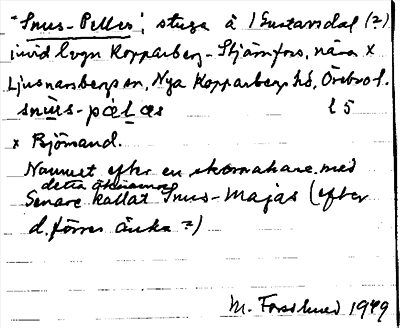 "Snus-Pelles", stuga å 1 Gustavsdal (?)
invid lvgn Kopparberg-Stjärnfors, nära x
Ljusnarsbergs sn, Nya Kopparbergs hd, Örebro l.
snus-pælæs l 5
x Björnand.
Namnet efter en skomakare med
detta öknamn
Senare kallat Snus-Majas (efter
d. förres änka?)
M. Forslund 1949